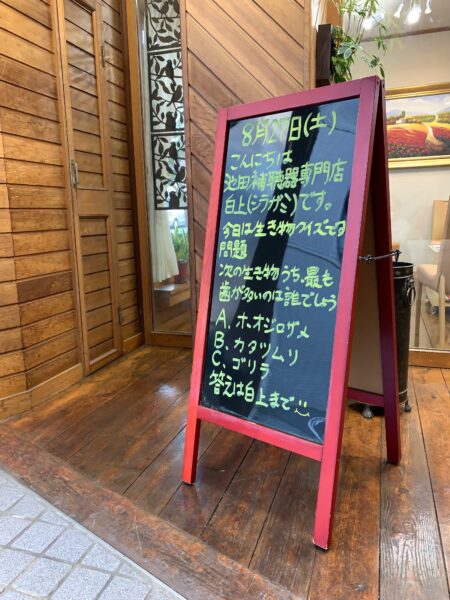 8月27日(土)
こんにちは
池田補聴器専門店
白上(シラガミ)です。
今日は生き物クイズです
問題
次の生き物うち、最も
歯が多いのは誰でしょう
A、ホオジロザメ
B、カタツムリ
C、ゴリラ
答えは白上まで